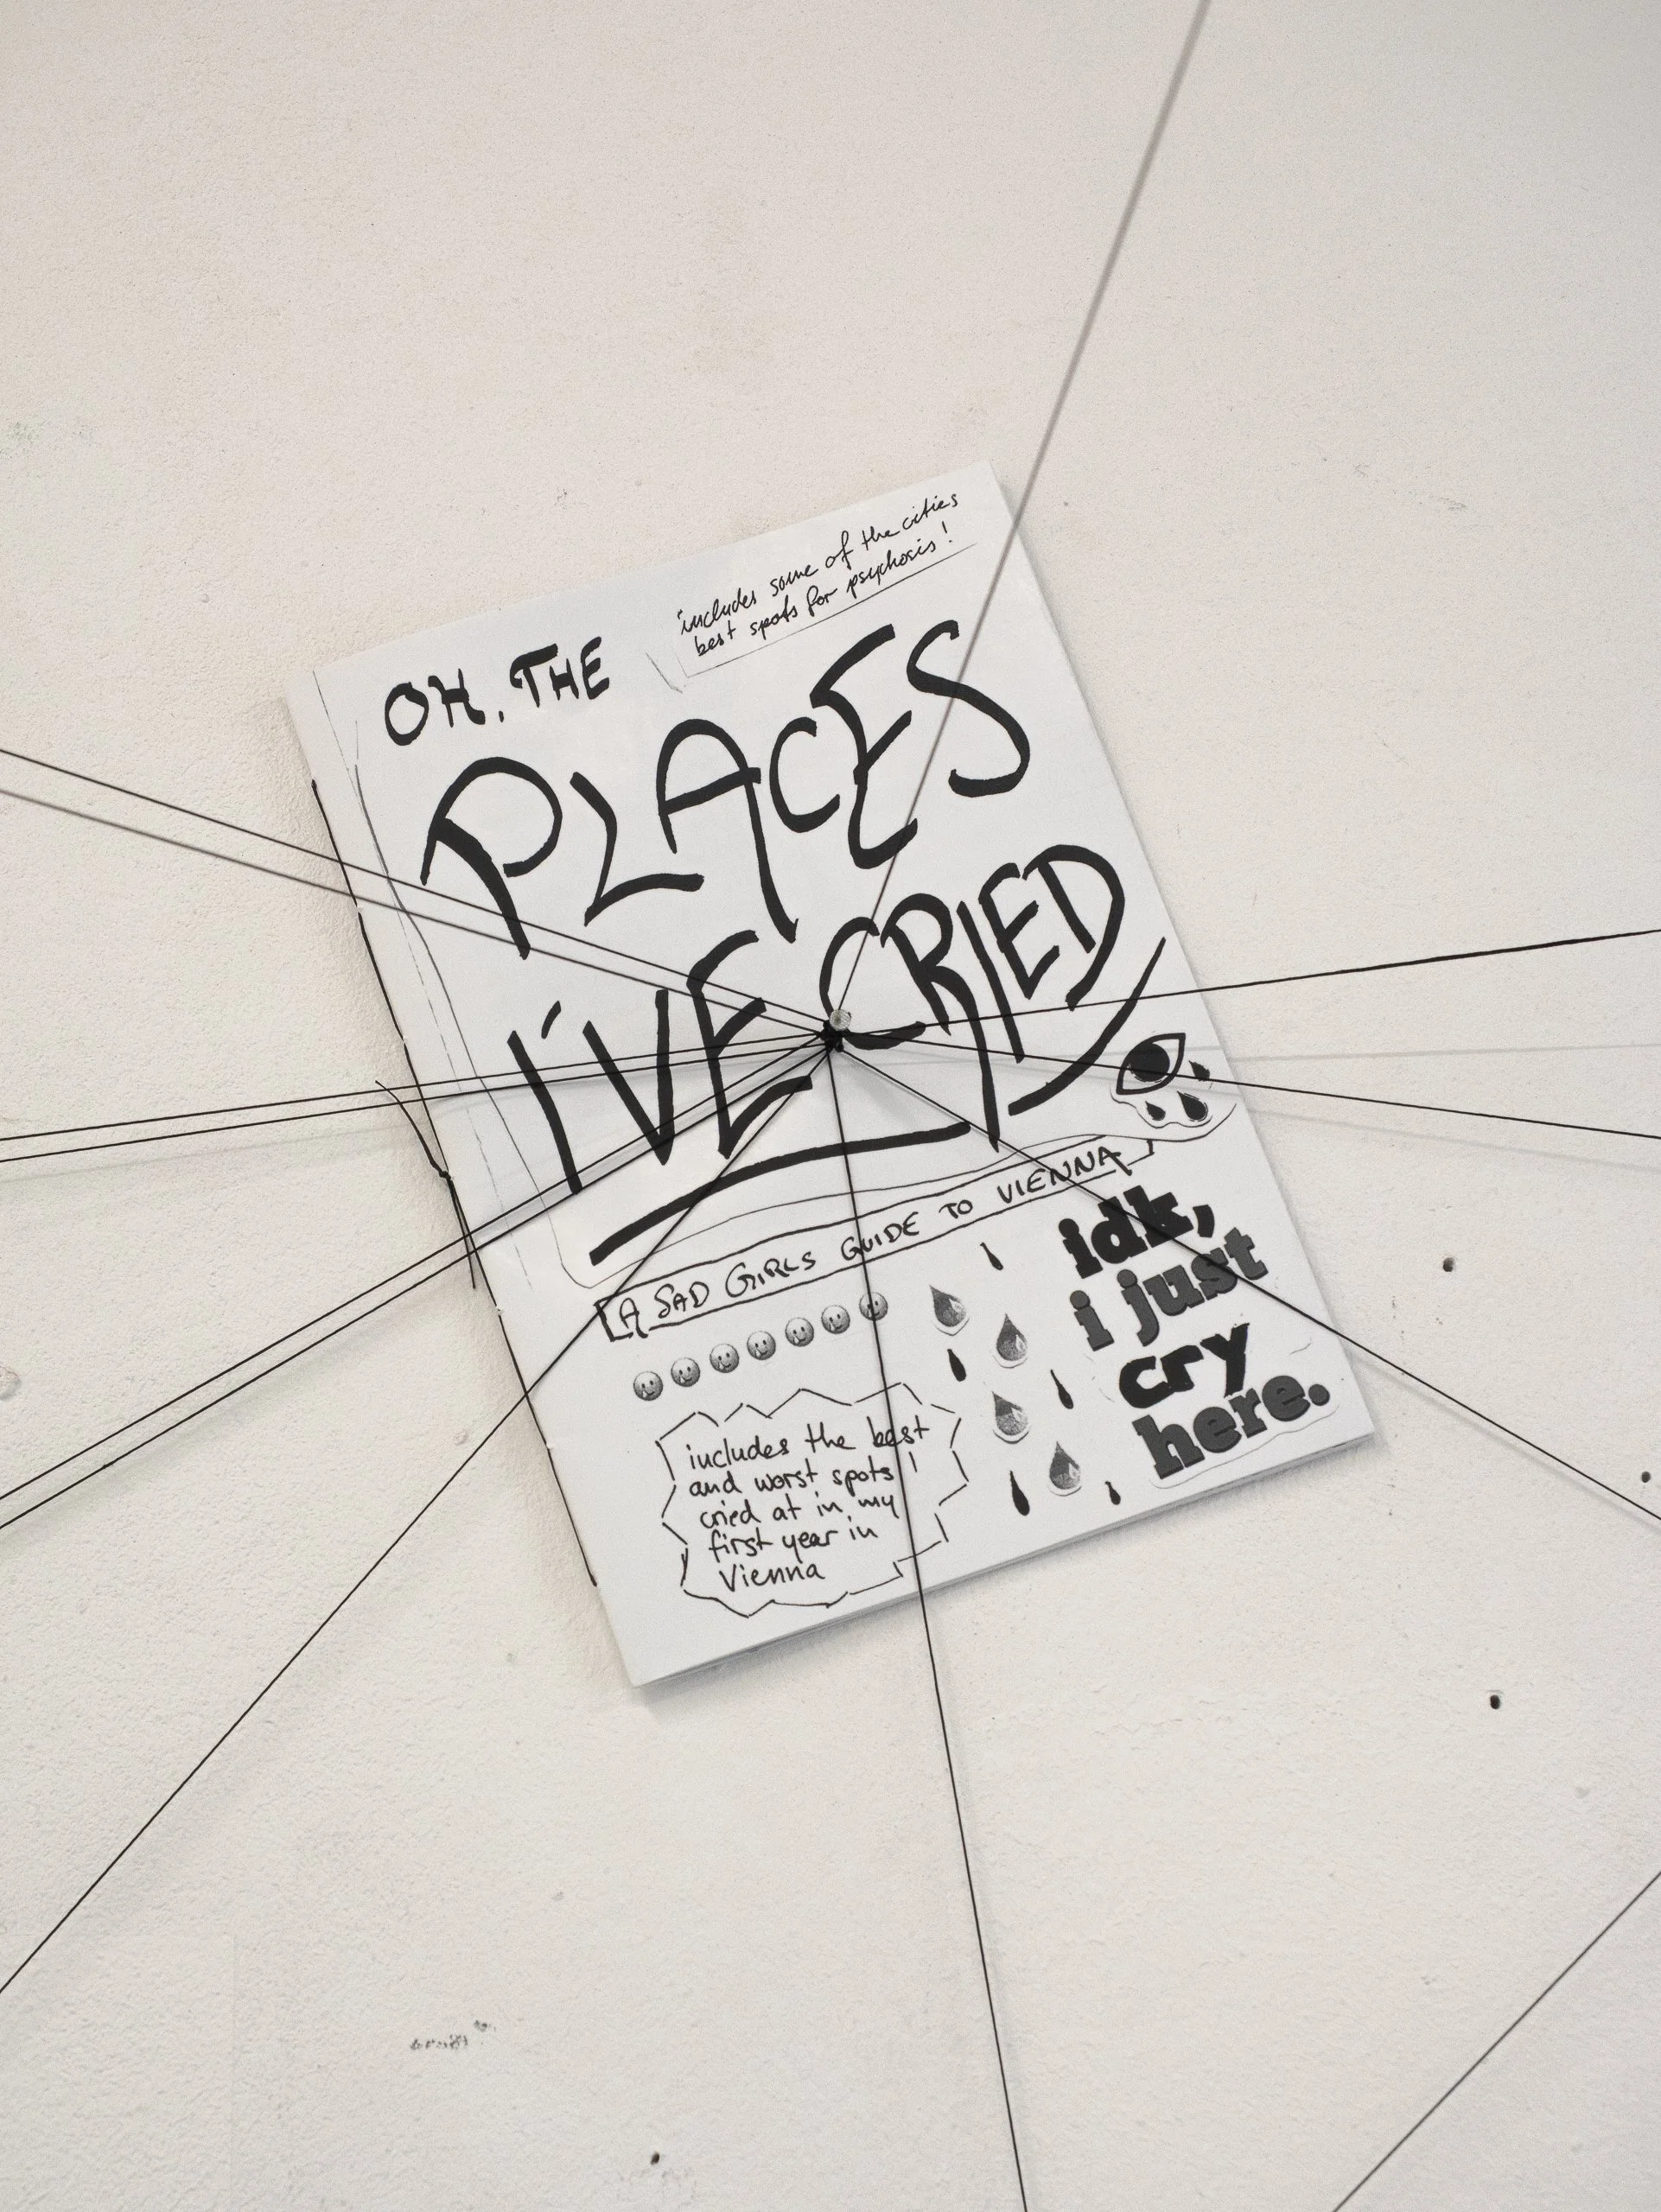 includes some of the cities
best spots for psychosis!
OH, THE
PLACES
I'VE CRIED
A SAD GIRLS GUIDE TO VIENNA
idk,
i just
cry
here.
includes the best
and worst spots I
cried at in my
first year in
Vienna